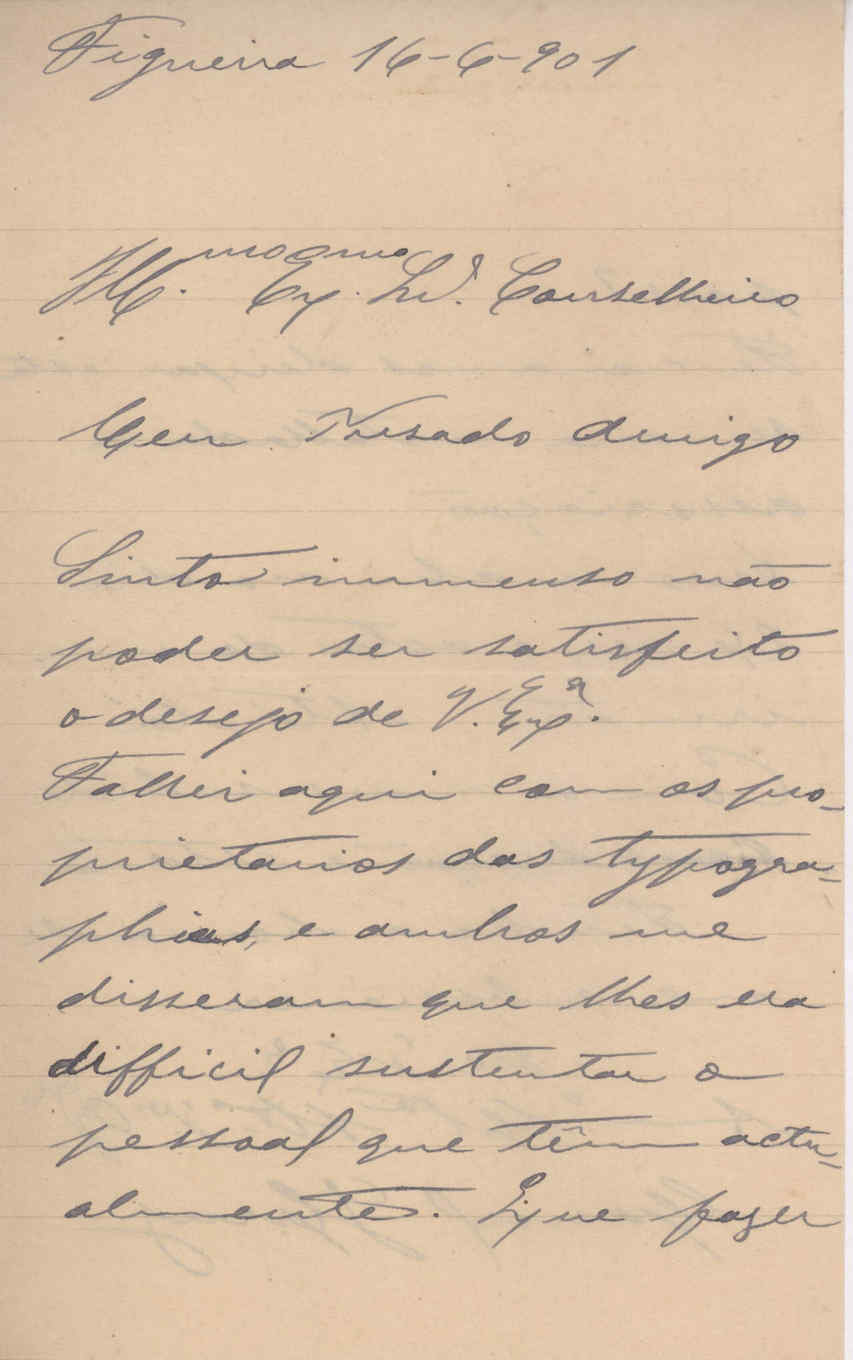 Figueira 16-6-901
Ill.mo Ex.mo Sr. Conselheiro
Meu Presado Amigo
Sinto immenso não
poder ser satisfeito
o desejo de V. Ex.a
Fallei aqui com os pro-
prietarios das typogra-
phias, e ambos me
disseram que lhes era
difficil sustentar o
pessoal que têm actu-
almente. Que fazer